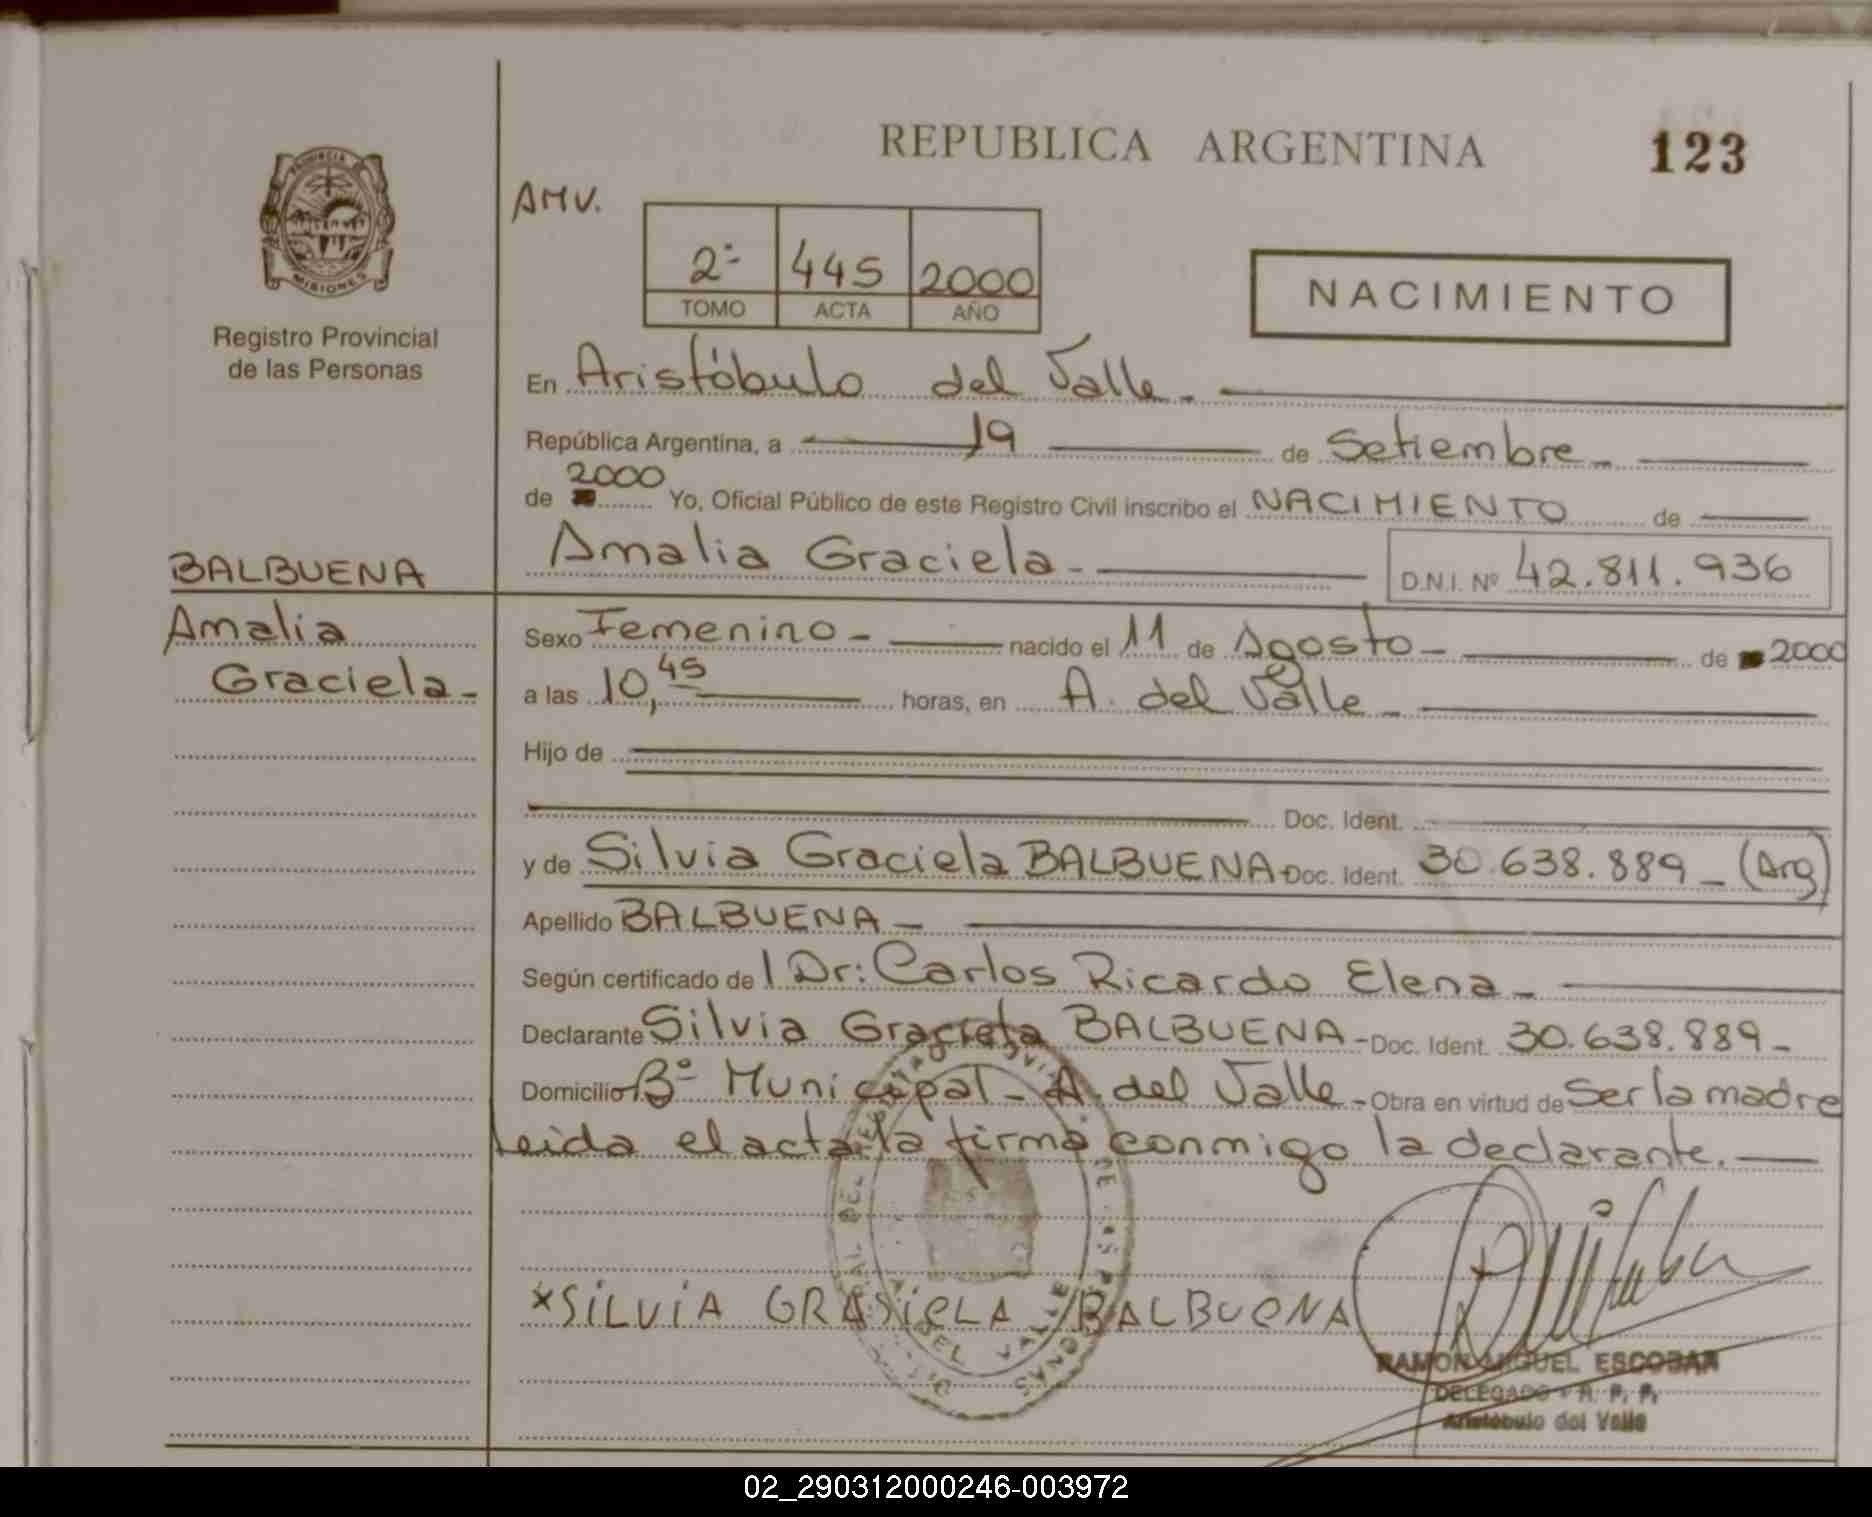 REPUBLICA ARGENTINA
123
PROVINCIA
MISIONES
Registro Provincial
de las Personas
AMV.
2º 445 2000
TOMO ACTA AÑO
NACIMIENTO
En Aristóbulo del Valle.
República Argentina, a 19 de Setiembre
de 2000 Yo, Oficial Público de este Registro Civil inscribo el NACIMIENTO de
Amalia Graciela- D.N.I. Nº 42.811.936
BALBUENA
Amalia
Graciela-
Sexo Femenino- nacido el 11 de Agosto- de 2000
a las 10,45 horas, en A. del Valle-
Hijo de
Doc. Ident.
y de Silvia Graciela BALBUENA- Doc. Ident. 30.638.889- (Arg)
Apellido BALBUENA-
Según certificado de l Dr: Carlos Ricardo Elena-
Declarante Silvia Graciela BALBUENA- Doc. Ident. 30.638.889-
Domicilio Bº Municipal- A. del Valle- Obra en virtud de Ser la madre
Leida el acta la firma conmigo la declarante.
*SILVIA GRASIELA BALBUENA
RAMON MIGUEL ESCOBAR
DELEGADO - R. P. P.
Aristóbulo del Valle
02_290312000246-003972